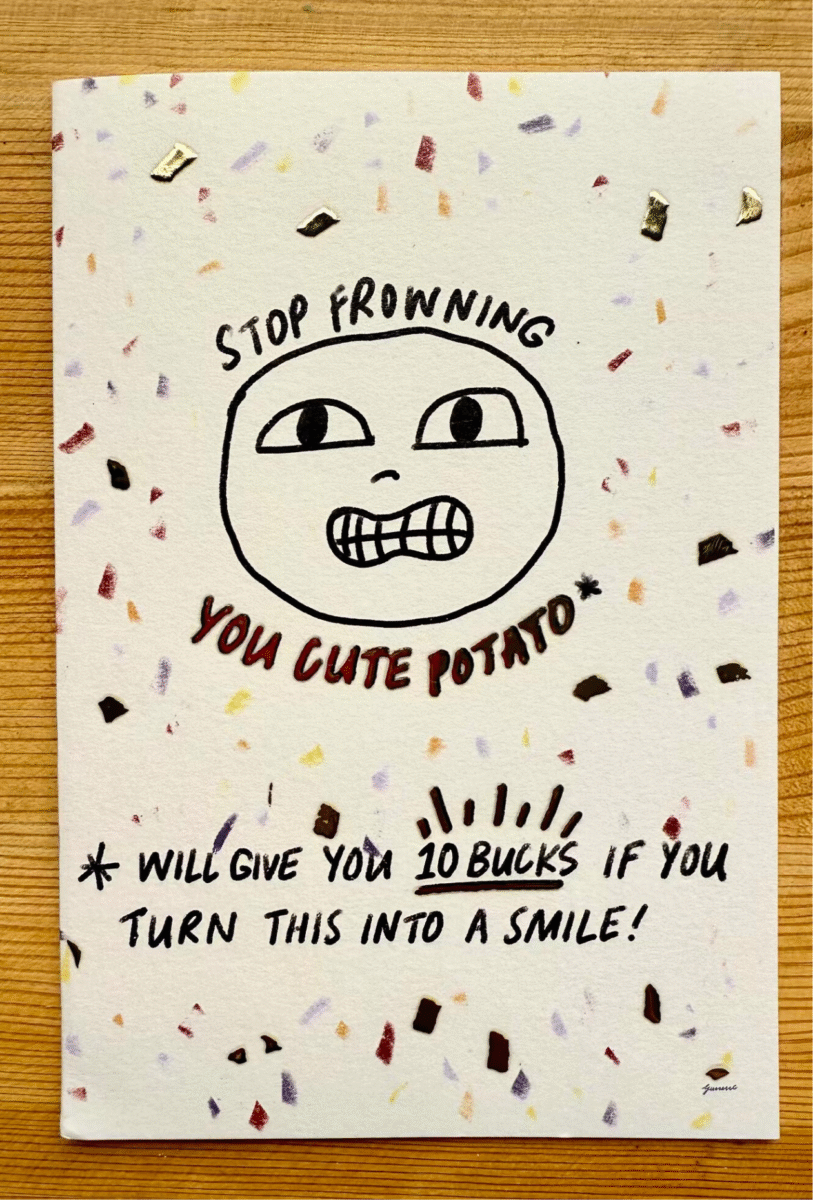 STOP FROWNING
YOU CUTE POTATO*
* WILL GIVE YOU 10 BUCKS IF YOU
TURN THIS INTO A SMILE!